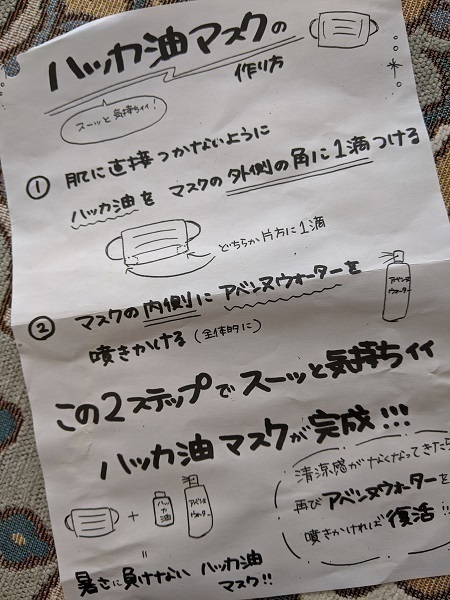 ハッカ油マスクの
作り方
スーッと気持ちイイ!
① 肌に直接つかないように
ハッカ油を マスクの外側の角に1滴つける
どちらか片方に1滴
② マスクの内側にアベンヌウォーターを
噴きかける(全体的に)
アベンヌ
ウォーター
この2ステップでスーッと気持ちイイ
ハッカ油マスクが完成!!!
+ ハッカ油 アベンヌウォーター
=
暑さに負けない ハッカ油
マスク!!
清涼感がなくなってきたら
再びアベンヌウォーターを
噴きかければ復活!!